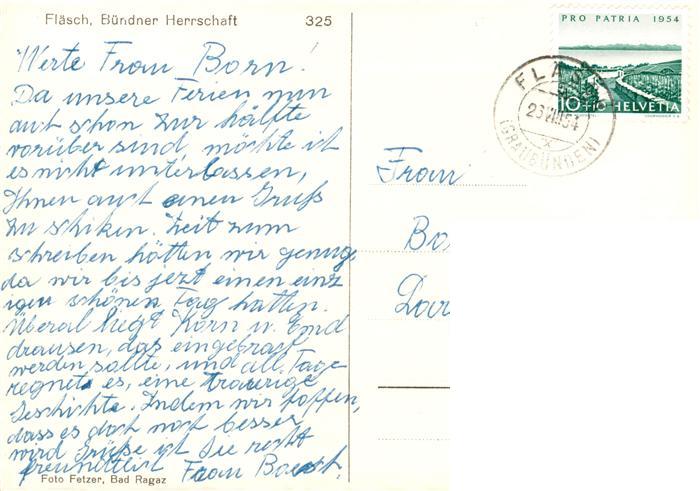 Fläsch, Bündner Herrschaft 325
Werte Frau Born!
Da unsere Ferien nun
auch schon zur hälfte
vorüber sind, möchte ich
es nicht unterlassen,
Ihnen auch einen Gruß
zu schiken. Zeit zum
schreiben hätten wir genug,
da wir bis jezt einen einz
igen schönen Tag hatten.
Überal liegt Korn u. Emd
drausen, das eingebracht
werden sollte, und all. Tage
regnet es, eine traurige
Geschichte. Indem wir hoffen,
dass es doch noch besser
wird Grüße ich Sie recht
freundtlich Frau
Foto Fetzer, Bad Ragaz
PRO PATRIA 1954
10+10 HELVETIA
FLÄSCH
23.VII.54
(GRAUBÜNDEN)
Frau